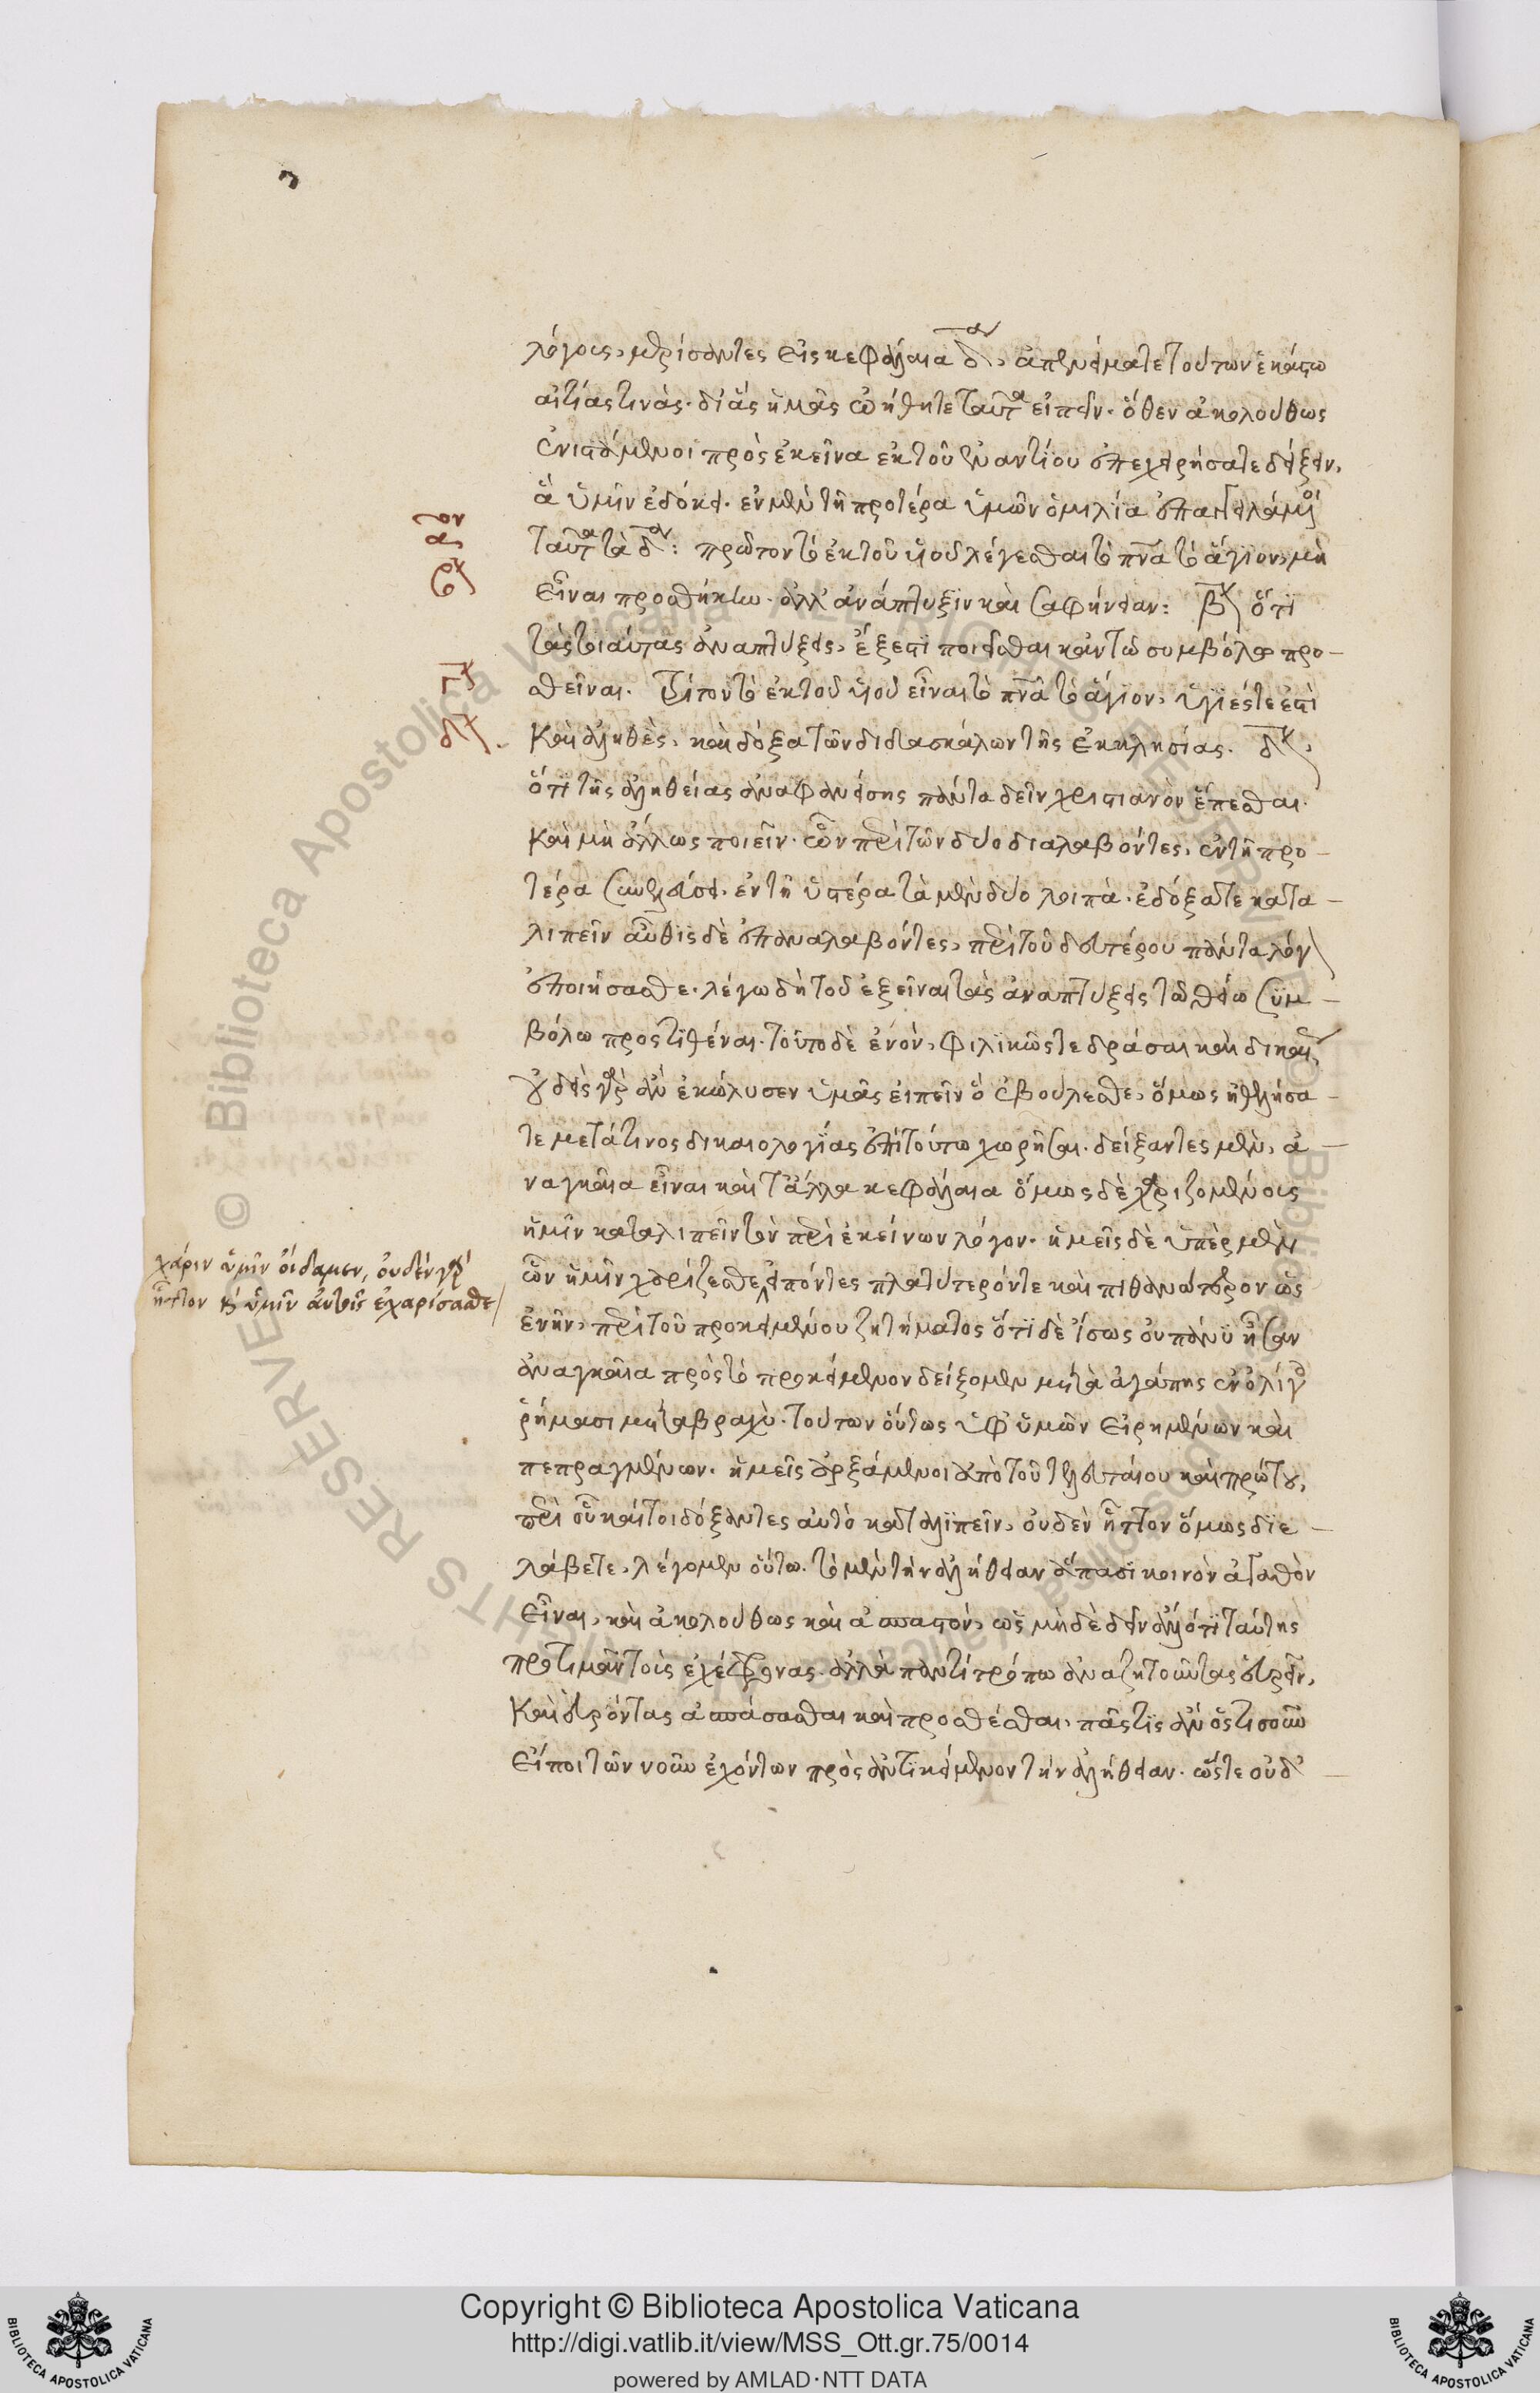 λόγοις, μερίσαντες εἰς κεφάλαια δ, ἀπενείματε τούτων ἑκάστω
αἰτίας τινὰς. δι' ἃς ἡμᾶς ᾠήθητε ταῦτα εἰπεῖν. ὅθεν ἀκολούθως
ἐνιστάμενοι πρὸς ἐκεῖνα ἐκ τοῦ ἐναντίου ἐπεχειρήσατε δείξειν,
ἃ ὑμῖν ἐδόκει. ἐν μὲν τῆ προτέρα ὑμῶν ὁμιλία
ταῦτα τὰ δ: πρῶτον τὸ ἐκ τοῦ υἱοῦ λέγεσθαι τὸ πνα τὸ ἅγιον, μὴ
εἶναι προσθήκην. ἀλλ' ἀνάπτυξιν καὶ σαφήνειαν: β ὅτι
τὰς τοιαύτας ἀναπτύξεις, ἔξεστι ποιεῖσθαι κἀν τῶ συμβόλω προ-
σθεῖναι. Τρίτον τὸ ἐκ τοῦ υἱοῦ εἶναι τὸ πνα τὸ ἅγιον, ὑγιές τε ἐστὶ
καὶ ἀληθὲς, καὶ δόξα τῶν διδασκάλων τῆς ἐκκλησίας. δ,
ὅτι τῆς ἀληθείας ἀναφανείσης πάντα δεῖν χριστιανὸν ἕπεσθαι.
καὶ μὴ ἄλλως ποιεῖν. ὧν περὶ τῶν δύο διαλαβόντες, ἐν τῆ προ-
τέρα συνελεύσει. ἐν τῆ ὑστέρα τὰ μὲν δύο λοιπὰ. ἐδόξατε κατα-
λιπεῖν αὖθις δὲ ἐπαναλαβόντες, περὶ τοῦ δευτέρου πάντα λόγον
ἐποιήσασθε. λέγω δὴ τοῦ ἐξεῖναι τὰς ἀναπτύξεις τῶ θείω συμ-
βόλω προστιθέναι. τοῦτο δὲ ἐνόν, φιλικῶς τε δράσαι καὶ δικαίως
οὐδεὶς γὰρ ἂν ἐκώλυσεν ὑμᾶς εἰπεῖν ὃ ἐβούλεσθε, ὅμως ἠθελήσα-
τε μετά τινος δικαιολογίας ἐπὶ τούτω χωρῆσαι. δείξαντες μὲν, ἀ-
ναγκαῖα εἶναι καὶ τἄλλα κεφάλαια ὅμως δὲ χαριζομένοις
ἡμῖν καταλιπεῖν τὸν περὶ ἐκείνων λόγον. ἡμεῖς δὲ ὑπὲρ μὲν
ὧν ἡμῖν χαρίζεσθε, εἰπόντες πλατύτερόν τε καὶ πιθανώτερον ὡς
ἐνῆν, περὶ τοῦ προκειμένου ζητήματος ὅτι δὲ ἴσως οὐ πάνυ ἦσαν
ἀναγκαῖα πρὸς τὸ προκείμενον δείξομεν μετὰ ἀγάπης ἐν ὀλίγοις
ῥήμασι μετὰ βραχὺ. τούτων οὕτως ὑφ' ὑμῶν εἰρημένων καὶ
πεπραγμένων. ἡμεῖς ἀρξάμενοι ἀπὸ τοῦ τελευταίου καὶ πρώτου,
περὶ οὗ καίτοι δόξαντες αὐτὸ καταλιπεῖν, οὐδὲν ἧττον ὅμως διε-
λάβετε, λέγομεν οὕτω. τὸ μὲν τὴν ἀλήθειαν ἅπασι κοινὸν ἀγαθὸν
εἶναι, καὶ ἀκολούθως καὶ ἀσπαστόν, ὡς μὴδὲ δεῖν ἄλλό τι ταύτης
προτιμᾶν τοὺς ἐχέφρονας. ἀλλὰ παντὶ τρόπω ἀναζητοῦντας εὑρεῖν,
καὶ εὑρόντας ἀσπάσασθαι καὶ προσθέσθαι, πᾶς τις ἂν ὅς τισοῦν
εἴποι τῶν νοῦν ἐχόντων πρὸς ἀντικείμενον τὴν ἀλήθειαν. ὥστε οὐδ'
αον
β
γ
δ
χάριν ὑμῖν οἴδαμεν, οὐδὲν γὰρ
ἧττον καὶ ὑμῖν αὐτοῖς ἐχαρίσασθε
Copyright © Biblioteca Apostolica Vaticana
http://digi.vatlib.it/view/MSS_Ott.gr.75/0014
powered by AMLAD·NTT DATA